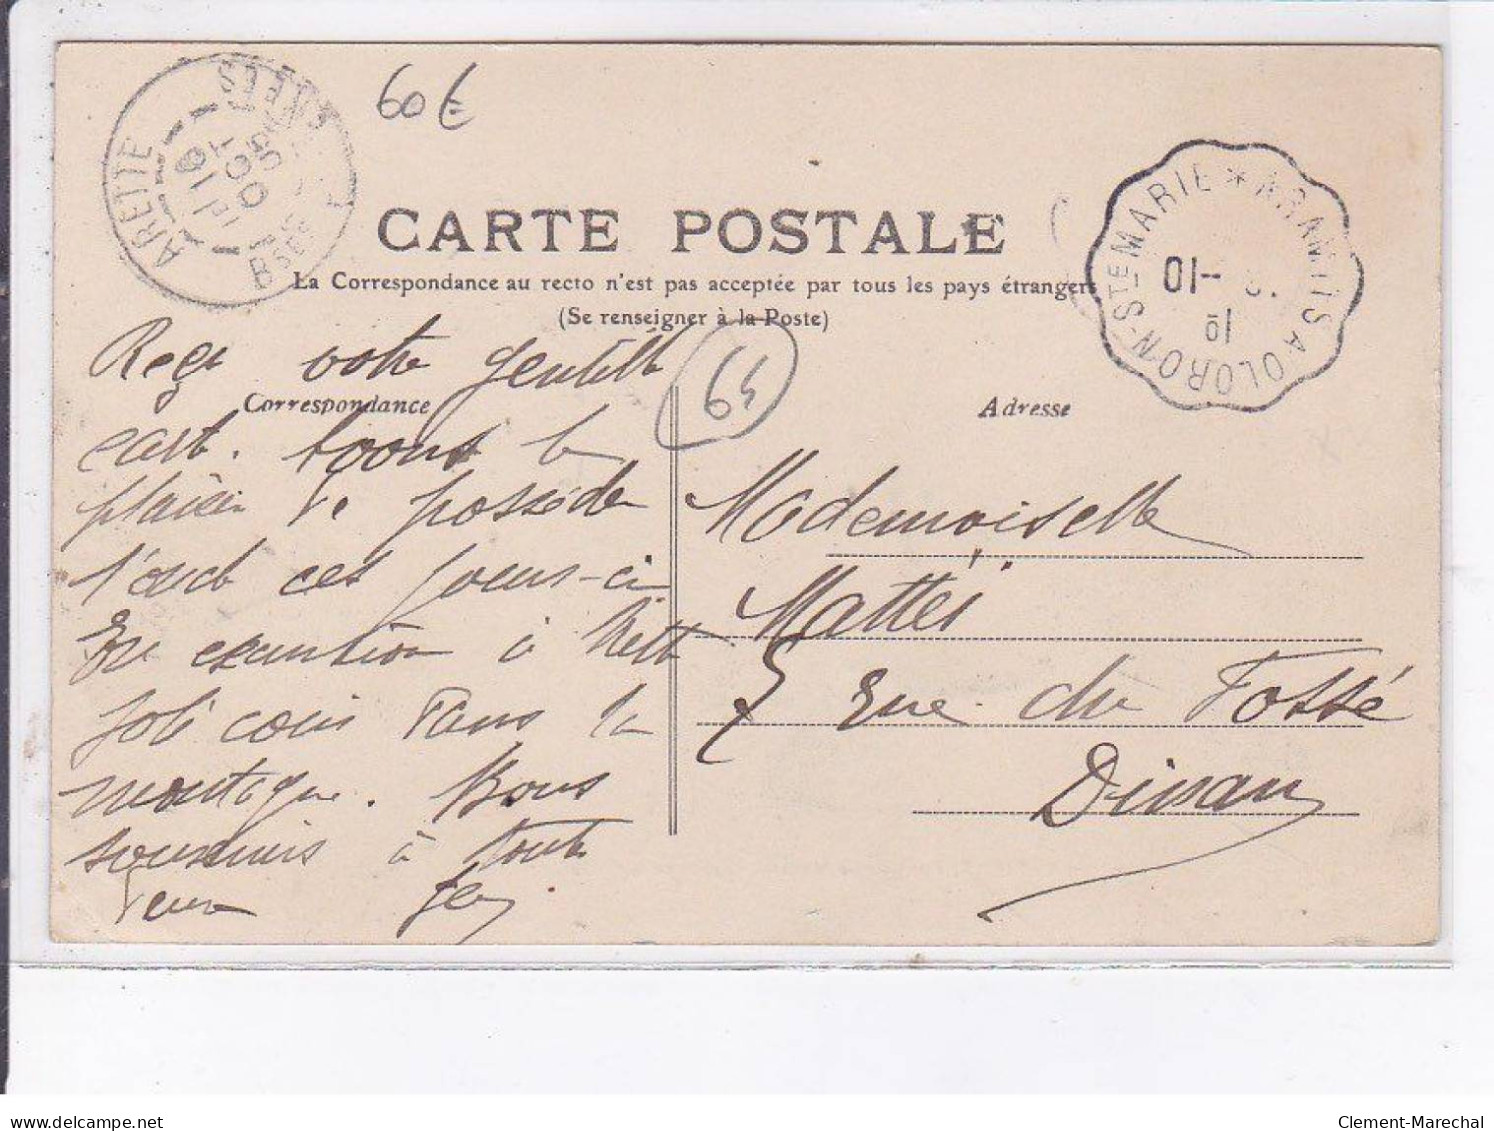 60€
ARETTE
BSES PYRÉNÉES
16
OCT
05
CARTE POSTALE
La Correspondance au recto n'est pas acceptée par tous les pays étrangers
(Se renseigner à la Poste)
ARAMITS A OLORON-STE MARIE *
10
64
Correspondance
Adresse
Reçu votre gentille
cart. avons le
plaisir de posséder
ces jours-ci
excurtion à
joli coin dans la
montagne. Bons
souvenirs à toute
Mademoiselle
Mattéi
rue du Fossé
Dinan
Clement-Marechal
www.delcampe.net